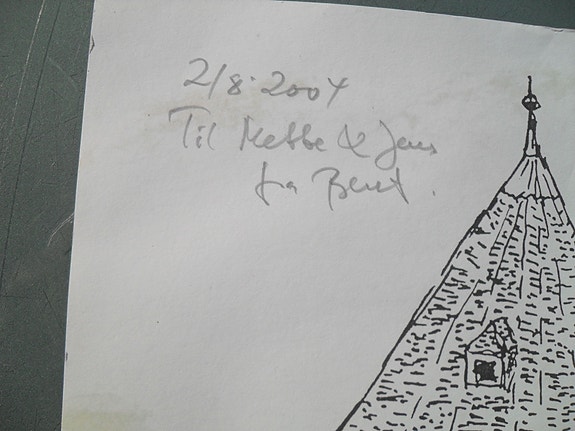 2/8.2004
Til Mette & Jens
fra Bent.